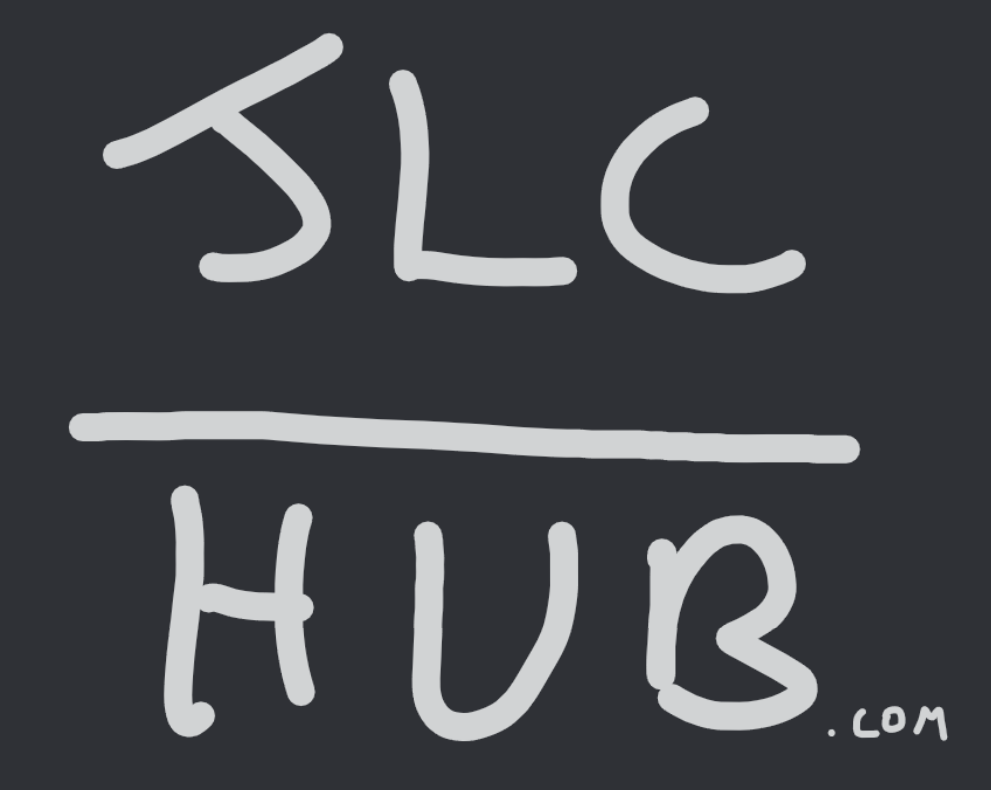 JLC
HUB.com